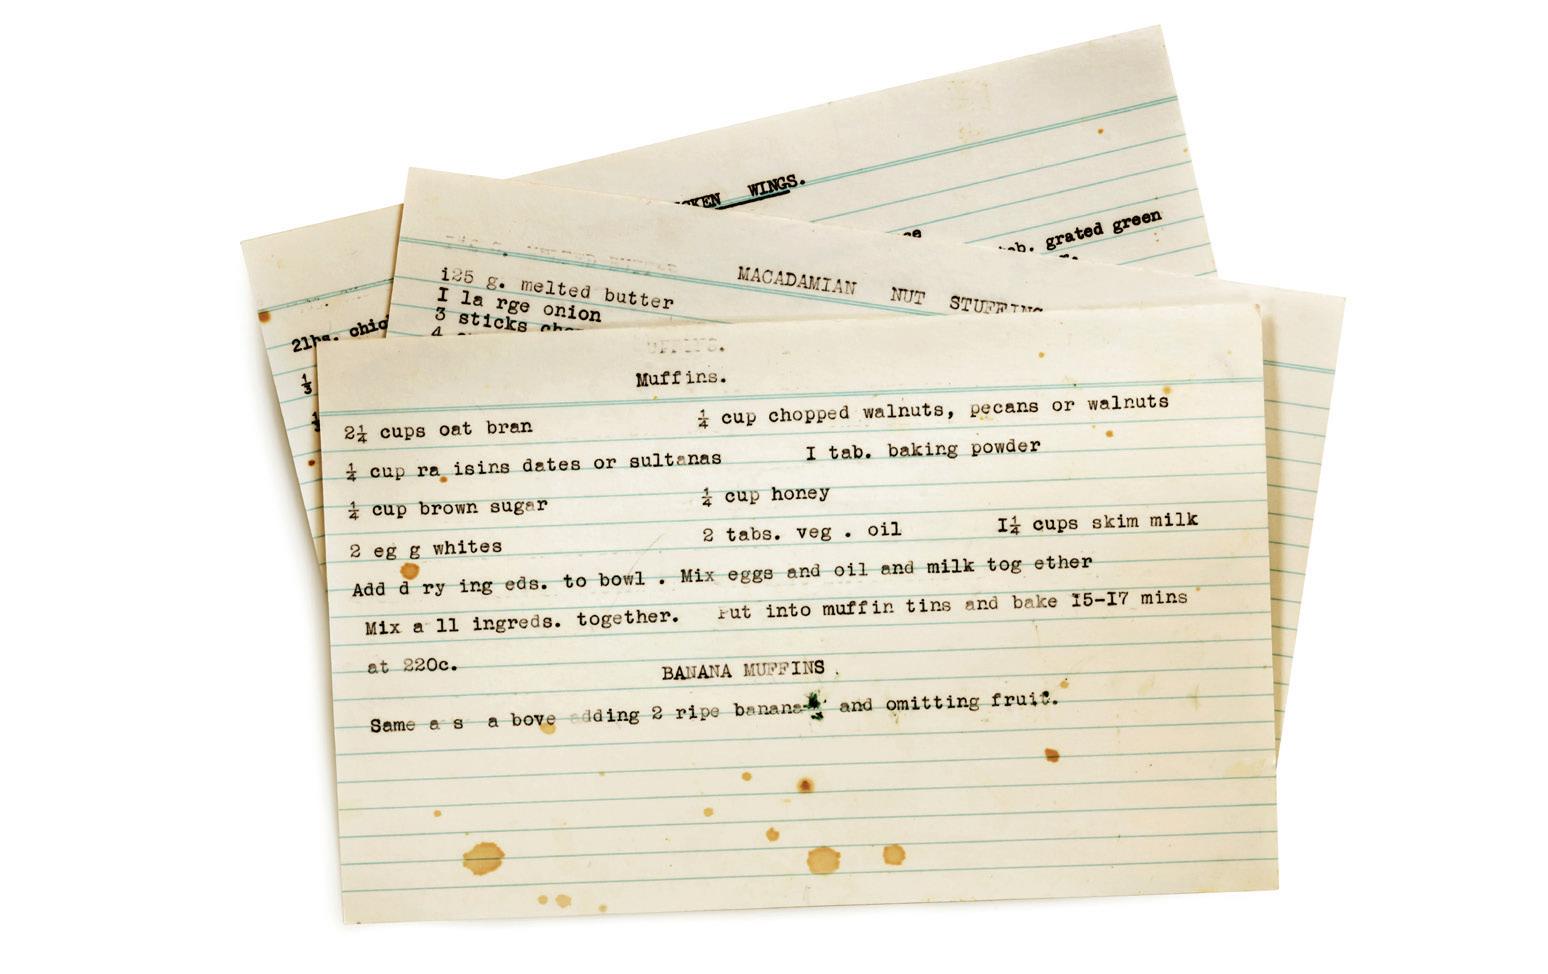 WINGS.
grated green
2lbs.
⅓
MACADAMIAN NUT
i25 g. melted butter
I la rge onion
3 sticks
4
Muffins.
2¼ cups oat bran ¼ cup chopped walnuts, pecans or walnuts
¼ cup ra isins dates or sultanas I tab. baking powder
¼ cup brown sugar ¼ cup honey
2 eg g whites 2 tabs. veg . oil I¼ cups skim milk
Add d ry ing eds. to bowl . Mix eggs and oil and milk tog ether
Mix a ll ingreds. together. Put into muffin tins and bake I5-I7 mins
at 220c.
BANANA MUFFINS .
Same a s a bove adding 2 ripe banana and omitting fruit.